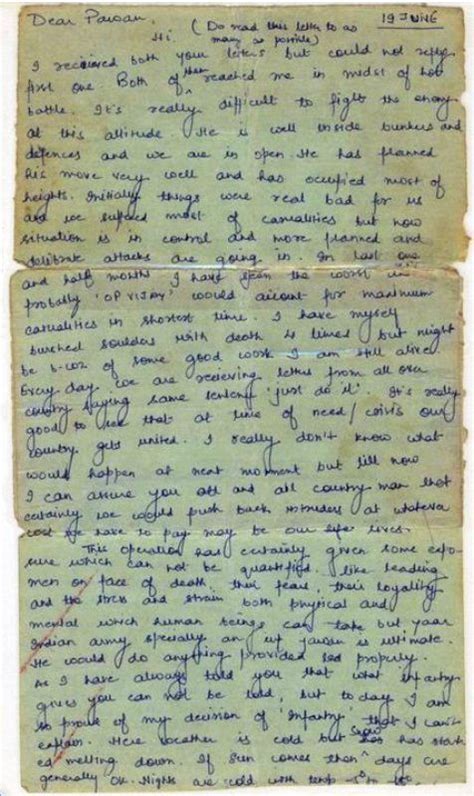 Dear Pawan, 19 JUNE
Hi. (Do read this letter to as
many as possible)
I received both your letters but could not reply
first one. Both of them reached me in midst of hot
battle. It's really difficult to fight the enemy
at this altitude. He is well inside bunkers and
defences and we are in open. He has planned
his move very well and has occupied most of
heights. Initially things were real bad for us
and we suffered most of casualities but now
situation is in control and more planned and
deliberate attacks are going in. In last one
and half months I have seen the worst
probably 'OP VIJAY' would account for maximum
casualities in shortest time. I have myself
brushed soulders with death 4 times but might
be b-coz of some good work I am still alive.
Every day we are recieving letters from all over
country saying same sentence 'just do it'. It's really
good to see that at time of need/crisis our
country gets united. I really don't know what
would happen at next moment but till now
I can assure you all and all country man that
certainly we would push back intruders at whatever
cost we have to pay may be our lives.
This operation has certainly given some expo-
sure which can not be quantified. like leading
men on face of death, their fears, their loyality
and the stress and strain both physical and
mental which human beings can take but yaar
Indian army specially an jawan is ultimate.
He would do anything provided led properly.
As I have always told you that what infantry
gives you can not be told, but today I am
so proud of my decision of 'Infantry' that I can't
explain. Here weather is cold but snow has start
ed melting down. If Sun comes then days are
generally OK. Nights are cold with temp -5° to